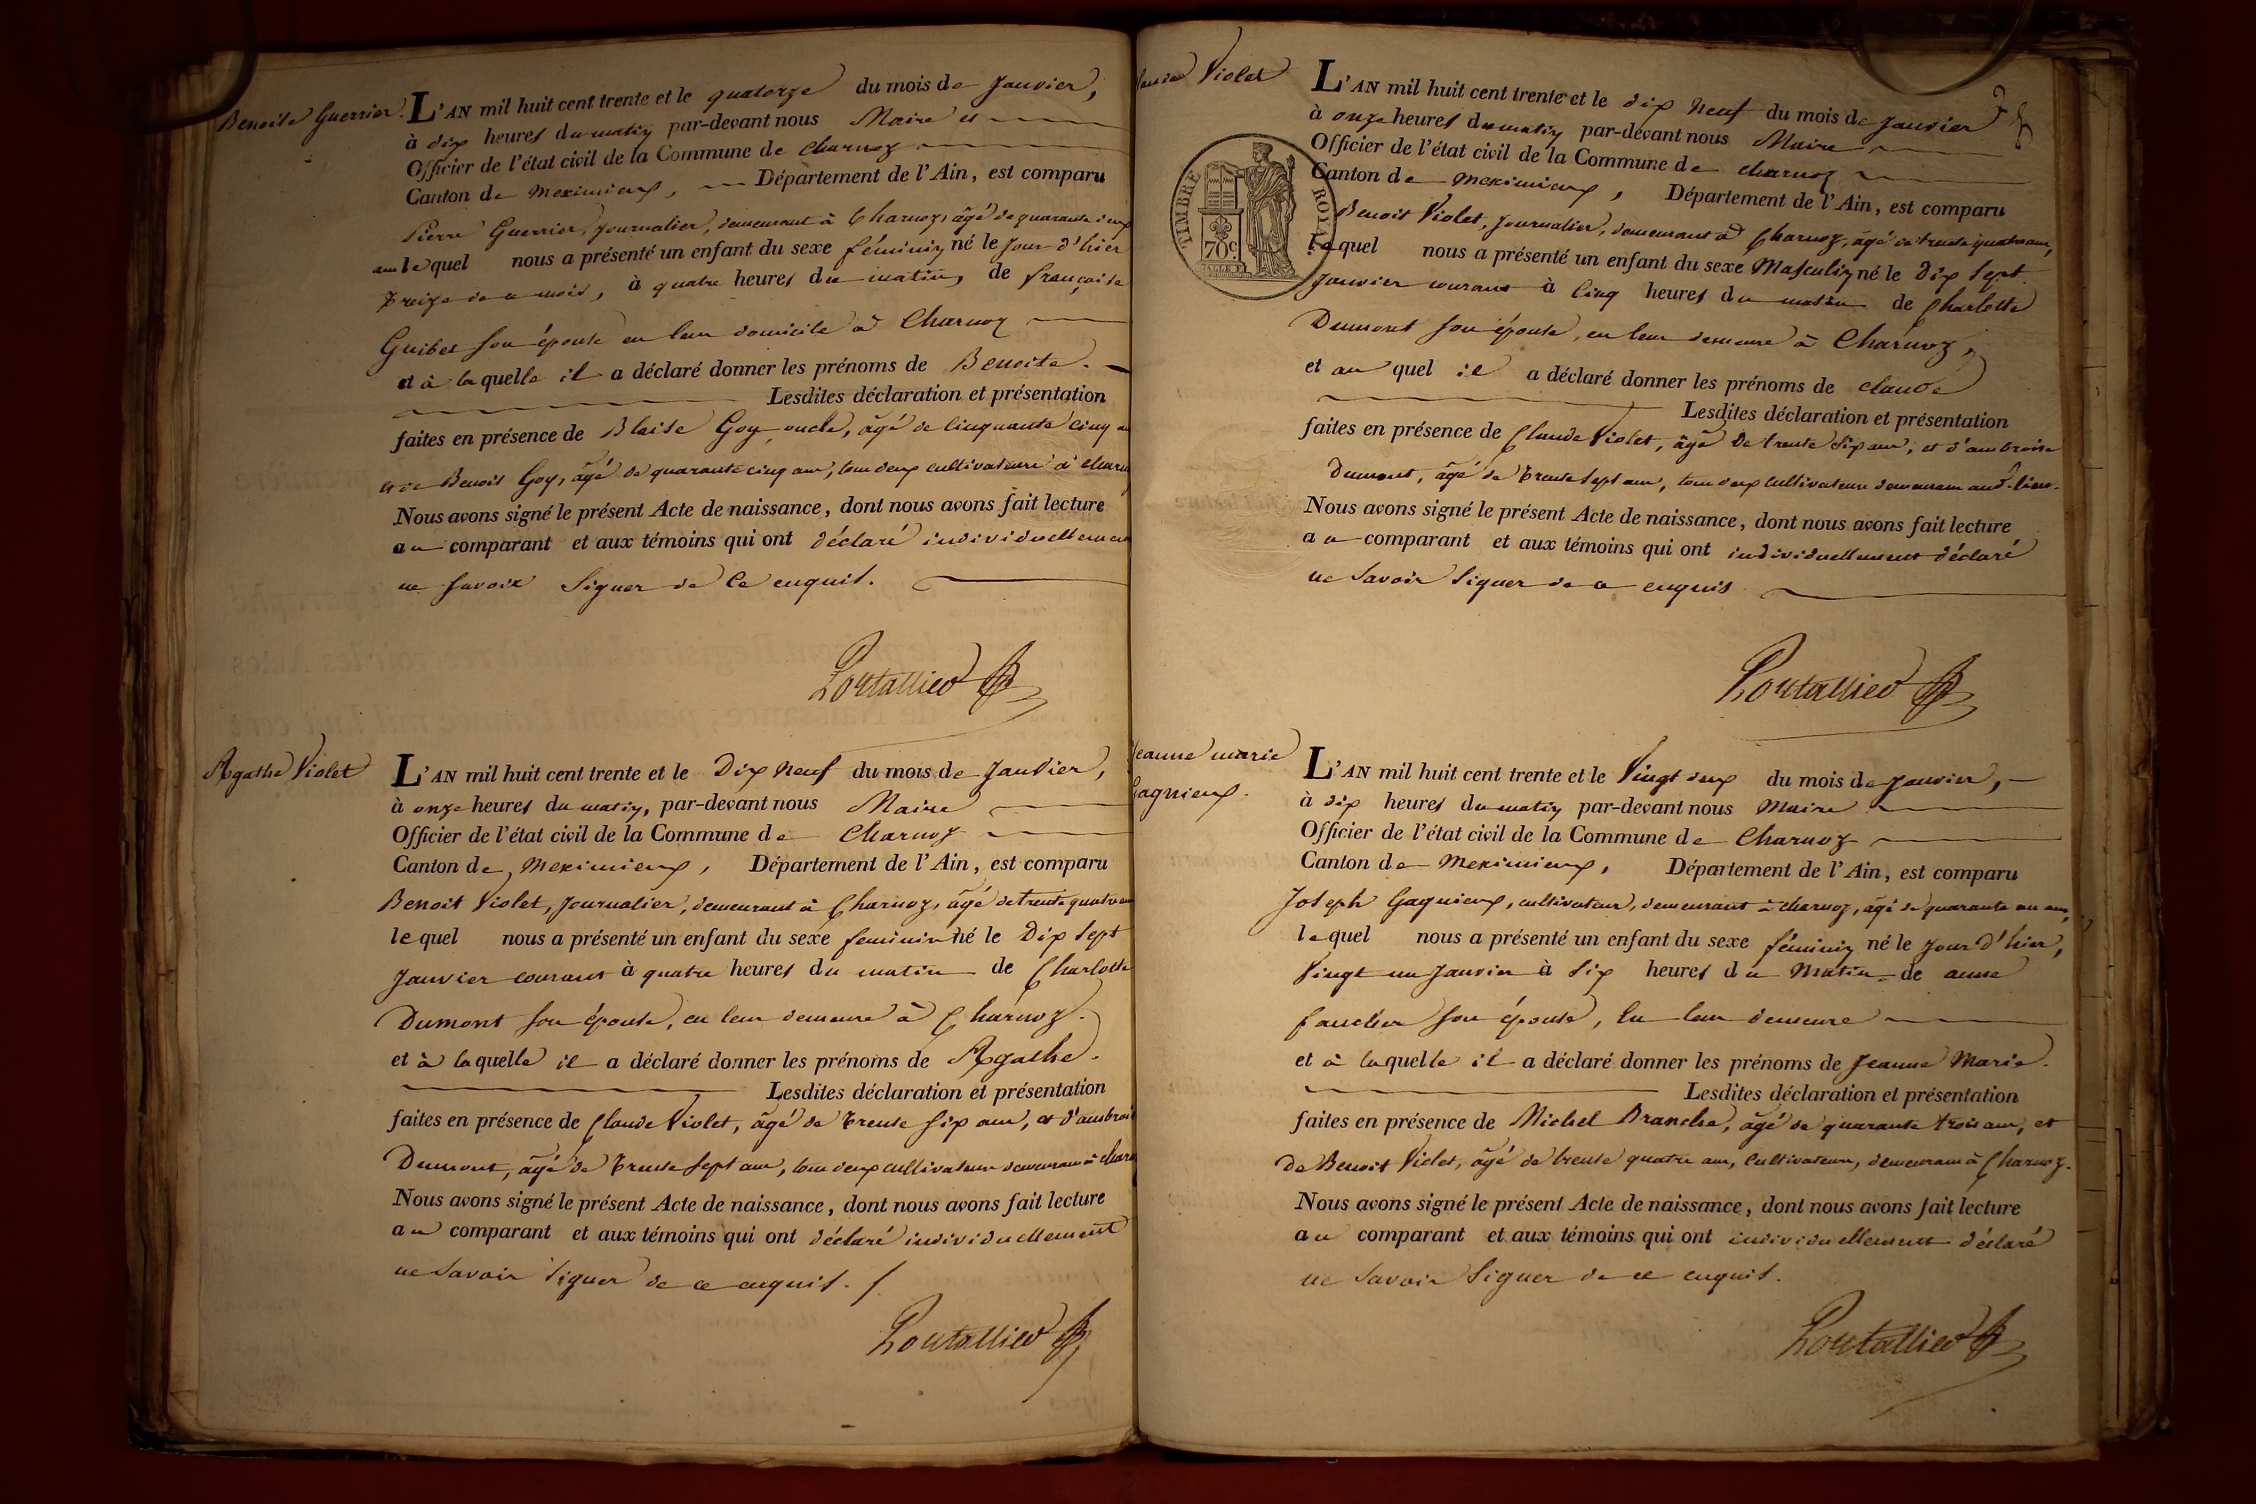 Benoite Guerrier.
L'AN mil huit cent trente et le quatorze du mois de Janvier,
à dix heures du matin par-devant nous Maire et
Officier de l'état civil de la Commune de Charnoz
Canton de Meximieux, Département de l'Ain, est comparu
Pierre Guerrier, Journalier, demeurant à Charnoz, âgé de quarante deux
ans lequel nous a présenté un enfant du sexe féminin né le Jour d'hier
treize de ce mois, à quatre heures du matin, de françoise
Guibet son épouse en leur domicile à Charnoz
et à laquelle il a déclaré donner les prénoms de Benoite.
Lesdites déclaration et présentation
faites en présence de Blaise Goy oncle, âgé de Cinquante cinq
Benoit Goy, âgé de quarante cinq ans, tous deux cultivateurs à
Nous avons signé le présent Acte de naissance, dont nous avons fait lecture
au comparant et aux témoins qui ont déclaré individuellement
ne savoir signer de ce enquis.
Portallier
Agathe Violet
L'AN mil huit cent trente et le Dix neuf du mois de Janvier,
à onze heures du matin, par-devant nous Maire
Officier de l'état civil de la Commune de Charnoz
Canton de Meximieux, Département de l'Ain, est comparu
Benoit Violet, Journalier, demeurant à Charnoz, âgé de trente quatre ans
lequel nous a présenté un enfant du sexe feminin né le Dix sept
Janvier courant à quatre heures du matin de Charlotte
Dumont son épouse, en leur demeure à Charnoz.
et à laquelle il a déclaré donner les prénoms de Agathe.
Lesdites déclaration et présentation
faites en présence de Claude Violet, âgé de trente six ans, et d'ambroise
Dumont, âgé de trente sept ans, tous deux cultivateurs demeurans à
Nous avons signé le présent Acte de naissance, dont nous avons fait lecture
au comparant et aux témoins qui ont déclaré individuellement
ne savoir signer de ce enquis.
Portallier
Violet
TIMBRE ROYAL
70c.
L'AN mil huit cent trente et le dix neuf du mois de Janvier
à onze heures du matin par-devant nous Maire
Officier de l'état civil de la Commune de charnoz
Canton de Meximieux, Département de l'Ain, est comparu
Benoit Violet, Journalier, demeurant à Charnoz, âgé de trente quatre ans,
lequel nous a présenté un enfant du sexe Masculin né le dix sept
Janvier courant à cinq heures du matin de Charlotte
Dumont son épouse, en leur demeure à Charnoz,
et au quel il a déclaré donner les prénoms de claude
Lesdites déclaration et présentation
faites en présence de Claude Violet, âgé de trente six ans, et d'ambroise
Dumont, âgé de trente sept ans, tous deux cultivateurs demeurans aud. lieu.
Nous avons signé le présent Acte de naissance, dont nous avons fait lecture
au comparant et aux témoins qui ont individuellement déclaré
ne savoir signer de ce enquis
Portallier
Jeanne marie
Gagnieux.
L'AN mil huit cent trente et le Vingt deux du mois de Janvier,
à dix heures du matin par-devant nous Maire
Officier de l'état civil de la Commune de Charnoz
Canton de Meximieux, Département de l'Ain, est comparu
Joseph Gagnieux, cultivateur, demeurant à charnoz, âgé de quarante un ans,
lequel nous a présenté un enfant du sexe féminin né le Jour d'hier,
Vingt un Janvier à six heures du Matin de anne
fauchier son épouse, en leur demeure
et à laquelle il a déclaré donner les prénoms de Jeanne Marie.
Lesdites déclaration et présentation
faites en présence de Michel Branche, âgé de quarante trois ans, et
De Benoit Violet, âgé de trente quatre ans, cultivateurs, demeurans à Charnoz.
Nous avons signé le présent Acte de naissance, dont nous avons fait lecture
au comparant et aux témoins qui ont individuellement déclaré
ne savoir signer de ce enquis.
Portallier